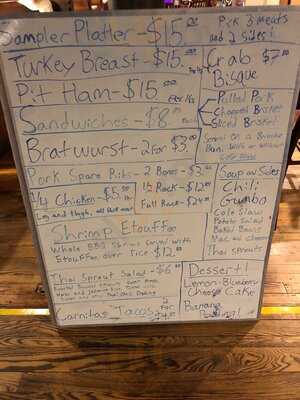 Sampler Platter - $15.00
Pick 3 meats
and 2 sides!
Turkey Breast - $15.00
Crab $7.00
Bisque
Pit Ham - $15.00
Pulled Pork
Chopped Brisket
Sliced Brisket
Sandwiches - $8
Served on a Brioche
Bun. With or without
Bratwurst - 2 For $3.00
Pork Spare Ribs - 2 Bones - $3.00
1/2 Rack - $12.00
Full Rack - $24.00
1/4 Chicken - $5.50
Leg and thigh, all dark meat
Soup and Sides
Chili
Gumbo
Cole Slaw
Potato Salad
Baked Beans
Mac and cheese
Thai sprouts
Shrimp Etouffee
Whole BBQ Shrimp served with
Etouffee over rice $12.00
Thai Sprout Salad - $6.00
Carnitas Tacos
2 For
Dessert!
Lemon-Blueberry
Cheese Cake
Banana
Pudding!